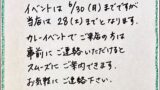 イベントは 6/30(月)までですが
当店は 28(土)までとなります。
カレーイベントでご来店の方は
事前にご連絡いただけると
スムーズにご案内できます。
お気軽にご連絡下さい。